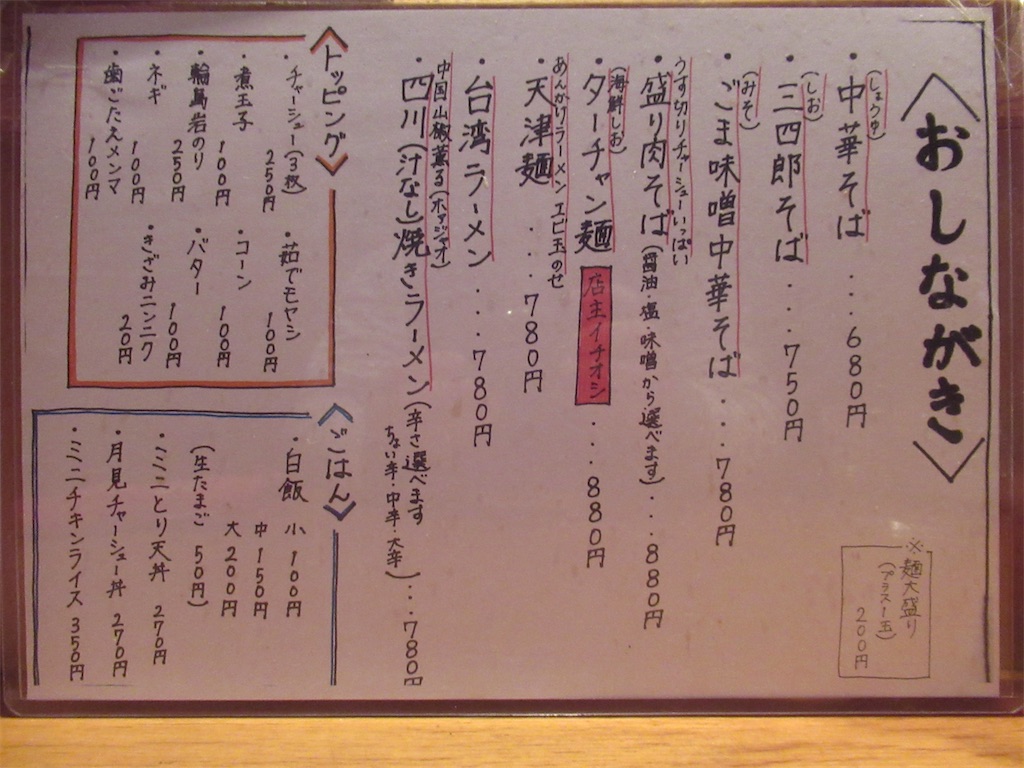 おしながき
(しょうゆ)
・中華そば ...680円
(しお)
・三四郎そば ....750円
(みそ)
・ごま味噌中華そば ....780円
うす切りチャーシューいっぱい
・盛り肉そば(醤油・塩・味噌から選べます)...880円
(海鮮しお)
・ターチャン麺 店主イチオシ ....880円
あんかけラーメン エビ玉のせ
・天津麺 ....780円
・台湾ラーメン ....780円
中国山椒薫る(ホアジャオ)
・四川(汁なし)焼きラーメン(辛さ選べます
ちょい辛・中辛・大辛)...780円
※麺大盛り
(プラス1玉)
200円
トッピング
・チャーシュー(3枚) 250円
・煮玉子 100円
・輪島岩のり 250円
・ネギ 100円
・歯ごたえメンマ 100円
・茹でモヤシ 100円
・コーン 100円
・バター 100円
・きざみニンニク 20円
ごはん
・白飯 小 100円
中 150円
大 200円
(生たまご 50円)
・ミニとり天丼 270円
・月見チャーシュー丼 270円
・ミニチキンライス 350円